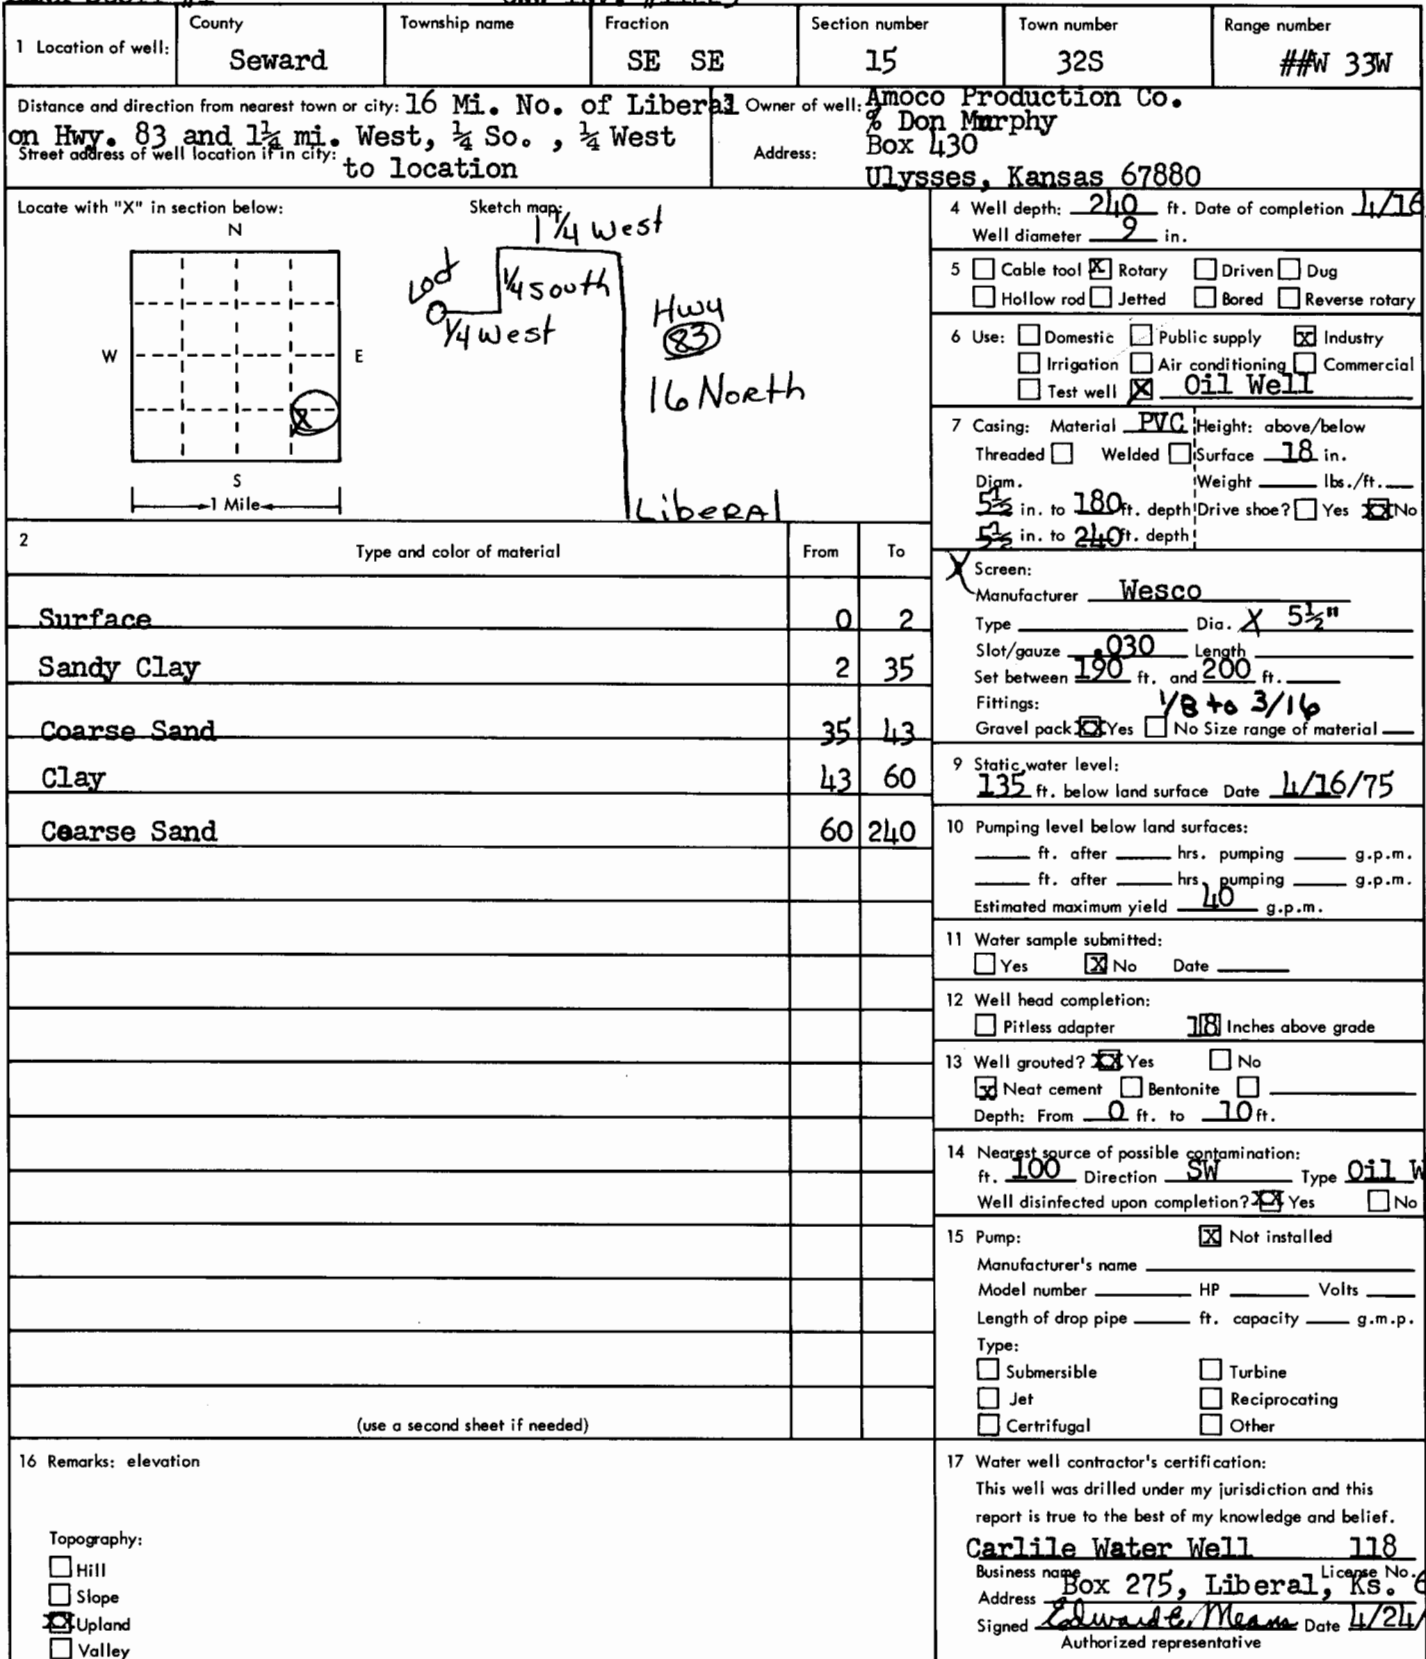 County Township name Fraction Section number Town number Range number
1 Location of well: Seward SE SE 15 32S ##W 33W
Distance and direction from nearest town or city: 16 Mi. No. of Liberal
on Hwy. 83 and 1¼ mi. West, ¼ So. , ¼ West
Street address of well location if in city: to location
Owner of well: Amoco Production Co.
% Don Murphy
Address: Box 430
Ulysses, Kansas 67880
Locate with "X" in section below:
N
W E
X
S
1 Mile
Sketch map:
1 1/4 West
Loc
1/4 South
1/4 West
Hwy
83
16 North
Liberal
4 Well depth: 240 ft. Date of completion 4/16
Well diameter 9 in.
5 Cable tool X Rotary Driven Dug
Hollow rod Jetted Bored Reverse rotary
6 Use: Domestic Public supply X Industry
Irrigation Air conditioning Commercial
Test well X Oil Well
7 Casing: Material PVC Height: above/below
Threaded Welded Surface 18 in.
Diam. Weight lbs./ft.
5½ in. to 180 ft. depth Drive shoe? Yes XX No
5½ in. to 240 ft. depth
2 Type and color of material From To
Surface 0 2
Sandy Clay 2 35
Coarse Sand 35 43
Clay 43 60
Coarse Sand 60 240
(use a second sheet if needed)
X Screen:
Manufacturer Wesco
Type Dia. X 5½"
Slot/gauze .030 Length
Set between 190 ft. and 200 ft.
Fittings: 1/8 to 3/16
Gravel pack XX Yes No Size range of material
9 Static water level:
135 ft. below land surface Date 4/16/75
10 Pumping level below land surfaces:
ft. after hrs. pumping g.p.m.
ft. after hrs. pumping g.p.m.
Estimated maximum yield 40 g.p.m.
11 Water sample submitted:
Yes X No Date
12 Well head completion:
Pitless adapter 18 Inches above grade
13 Well grouted? XX Yes No
X Neat cement Bentonite
Depth: From 0 ft. to 10 ft.
14 Nearest source of possible contamination:
ft. 100 Direction SW Type Oil W
Well disinfected upon completion? XX Yes No
15 Pump: X Not installed
Manufacturer's name
Model number HP Volts
Length of drop pipe ft. capacity g.m.p.
Type:
Submersible Turbine
Jet Reciprocating
Certrifugal Other
16 Remarks: elevation
Topography:
Hill
Slope
XX Upland
Valley
17 Water well contractor's certification:
This well was drilled under my jurisdiction and this
report is true to the best of my knowledge and belief.
Carlile Water Well 118
Business name License No.
Address Box 275, Liberal, Ks. 6
Signed Edward E. Means Date 4/24/
Authorized representative